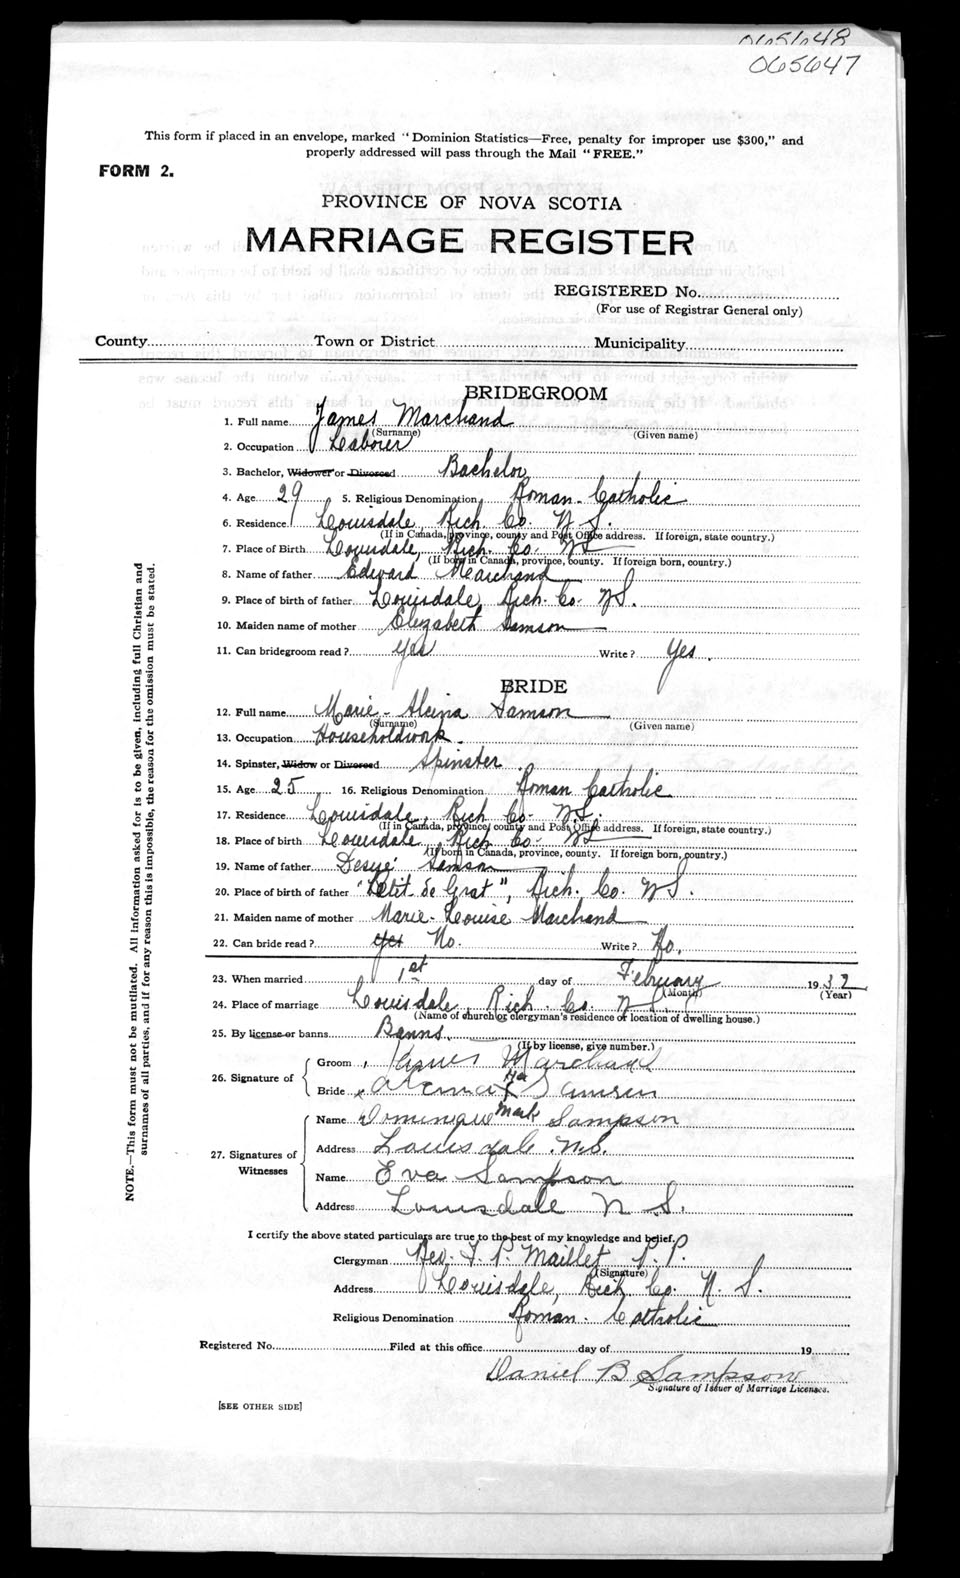 065648
065647
This form if placed in an envelope, marked "Dominion Statistics—Free, penalty for improper use $300," and
properly addressed will pass through the Mail "FREE."
FORM 2.
PROVINCE OF NOVA SCOTIA
MARRIAGE REGISTER
REGISTERED No.
(For use of Registrar General only)
County Town or District Municipality
BRIDEGROOM
1. Full name James Marchand
(Surname) (Given name)
2. Occupation Laborer
3. Bachelor, Widower or Divorced Bachelor
4. Age 29 5. Religious Denomination Roman-Catholic
6. Residence Louisdale, Rich. Co. N.S.
(If in Canada, province, county and Post Office address. If foreign, state country.)
7. Place of Birth Louisdale, Rich. Co. NS
(If born in Canada, province, county. If foreign born, country.)
8. Name of father Edward Marchand
9. Place of birth of father Louisdale, Rich. Co. NS.
10. Maiden name of mother Elizabeth Samson
11. Can bridegroom read? yes Write? Yes.
BRIDE
12. Full name Marie-Alcina Samson
(Surname) (Given name)
13. Occupation Householdwork.
14. Spinster, Widow or Divorced Spinster.
15. Age 25 16. Religious Denomination Roman Catholic
17. Residence Louisdale, Rich Co. N.S.
(If in Canada, province, county and Post Office address. If foreign, state country.)
18. Place of birth Louisdale, Rich. Co. NS
(If born in Canada, province, county. If foreign born, country.)
19. Name of father Samson
20. Place of birth of father "Petit-de Grat", Rich. Co. NS.
21. Maiden name of mother Marie-Louise Marchand
22. Can bride read? yes No. Write? No.
23. When married 1st day of February 1932
(Month) (Year)
24. Place of marriage Louisdale, Rich. Co. N.S.
(Name of church or clergyman's residence or location of dwelling house.)
25. By license or banns Banns.
(If by license, give number.)
26. Signature of Groom James Marchand
Her
Bride x Samson
mark
27. Signatures of Witnesses Name Dominique Sampson
Address Louisdale N.S.
Name Eva Sampson
Address Louisdale N S.
I certify the above stated particulars are true to the best of my knowledge and belief.
Clergyman Rev. J. P. Maillet P.P.
(Signature)
Address Louisdale, Rich. Co. N.S.
Religious Denomination Roman-Catholic
Registered No. Filed at this office day of 19
Daniel B Sampson
Signature of Issuer of Marriage Licenses.
[SEE OTHER SIDE]
NOTE.—This form must not be mutilated. All information asked for is to be given, including full Christian and
surnames of all parties, and if for any reason this is impossible, the reason for the omission must be stated.